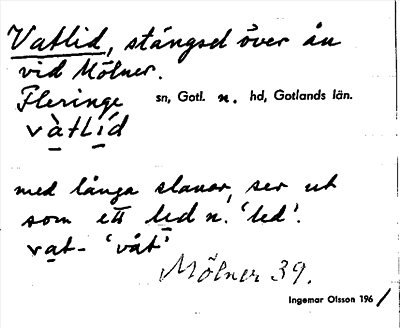 Vatlid, stängsel över ån
vid Mölner.
Fleringe sn, Gotl. n. hd, Gotlands län.
vàtlíd
med långa slanor, ser ut
som ett led n. 'led'.
vat- 'våt'
Mölner 39.
Ingemar Olsson 1961